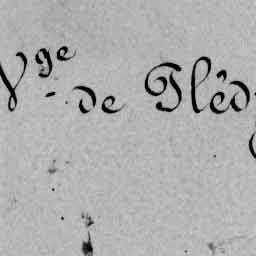 Vge de Plédi